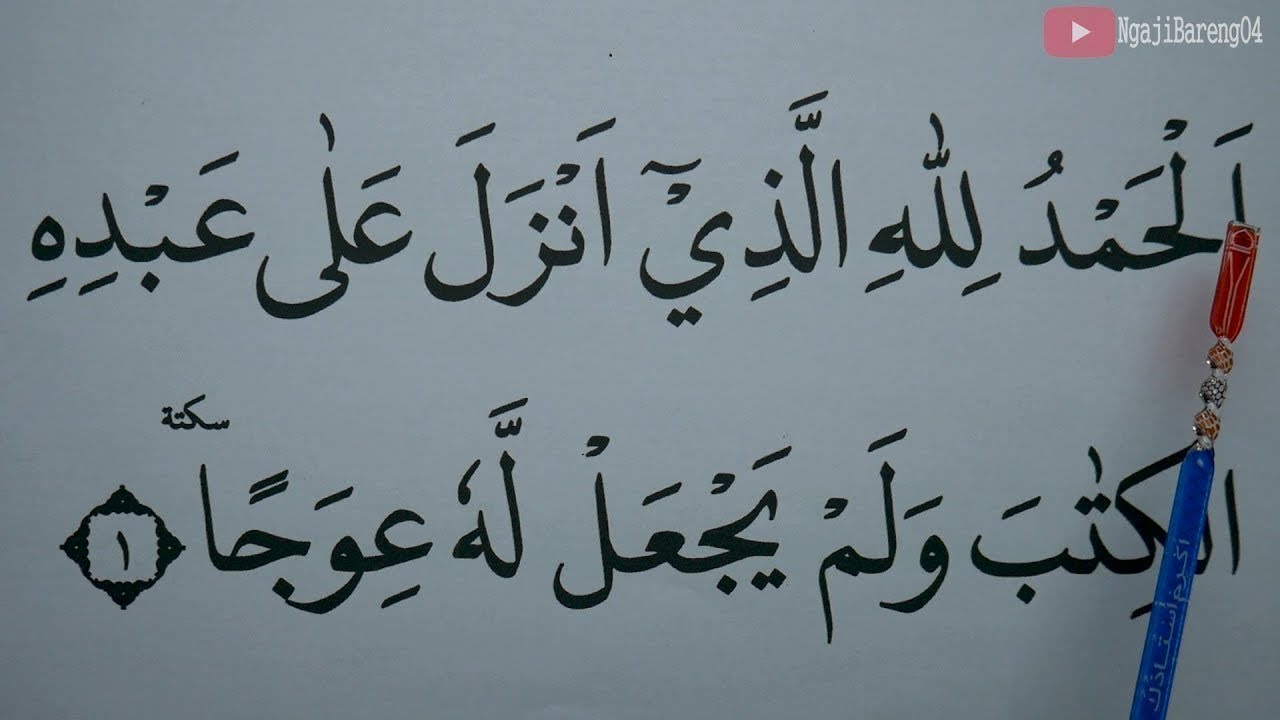 NgajiBareng04
اَلْحَمْدُ لِلّٰهِ الَّذِيْٓ اَنْزَلَ عَلٰى عَبْدِهِ
سكتة
الْكِتٰبَ وَلَمْ يَجْعَلْ لَّهٗ عِوَجًا ۝١
اكرم أستاذك